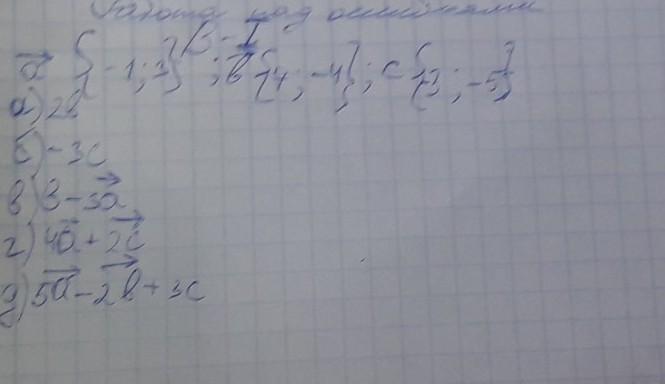 Работа над ошибками
В-I
a⃗ {-1; 3}; b⃗ {4; -4}; c {3; -5}
а) 2b
б) -3c
в) b - 3a⃗
г) 4a⃗ + 2c⃗
д) 5a⃗ - 2b⃗ + 3c